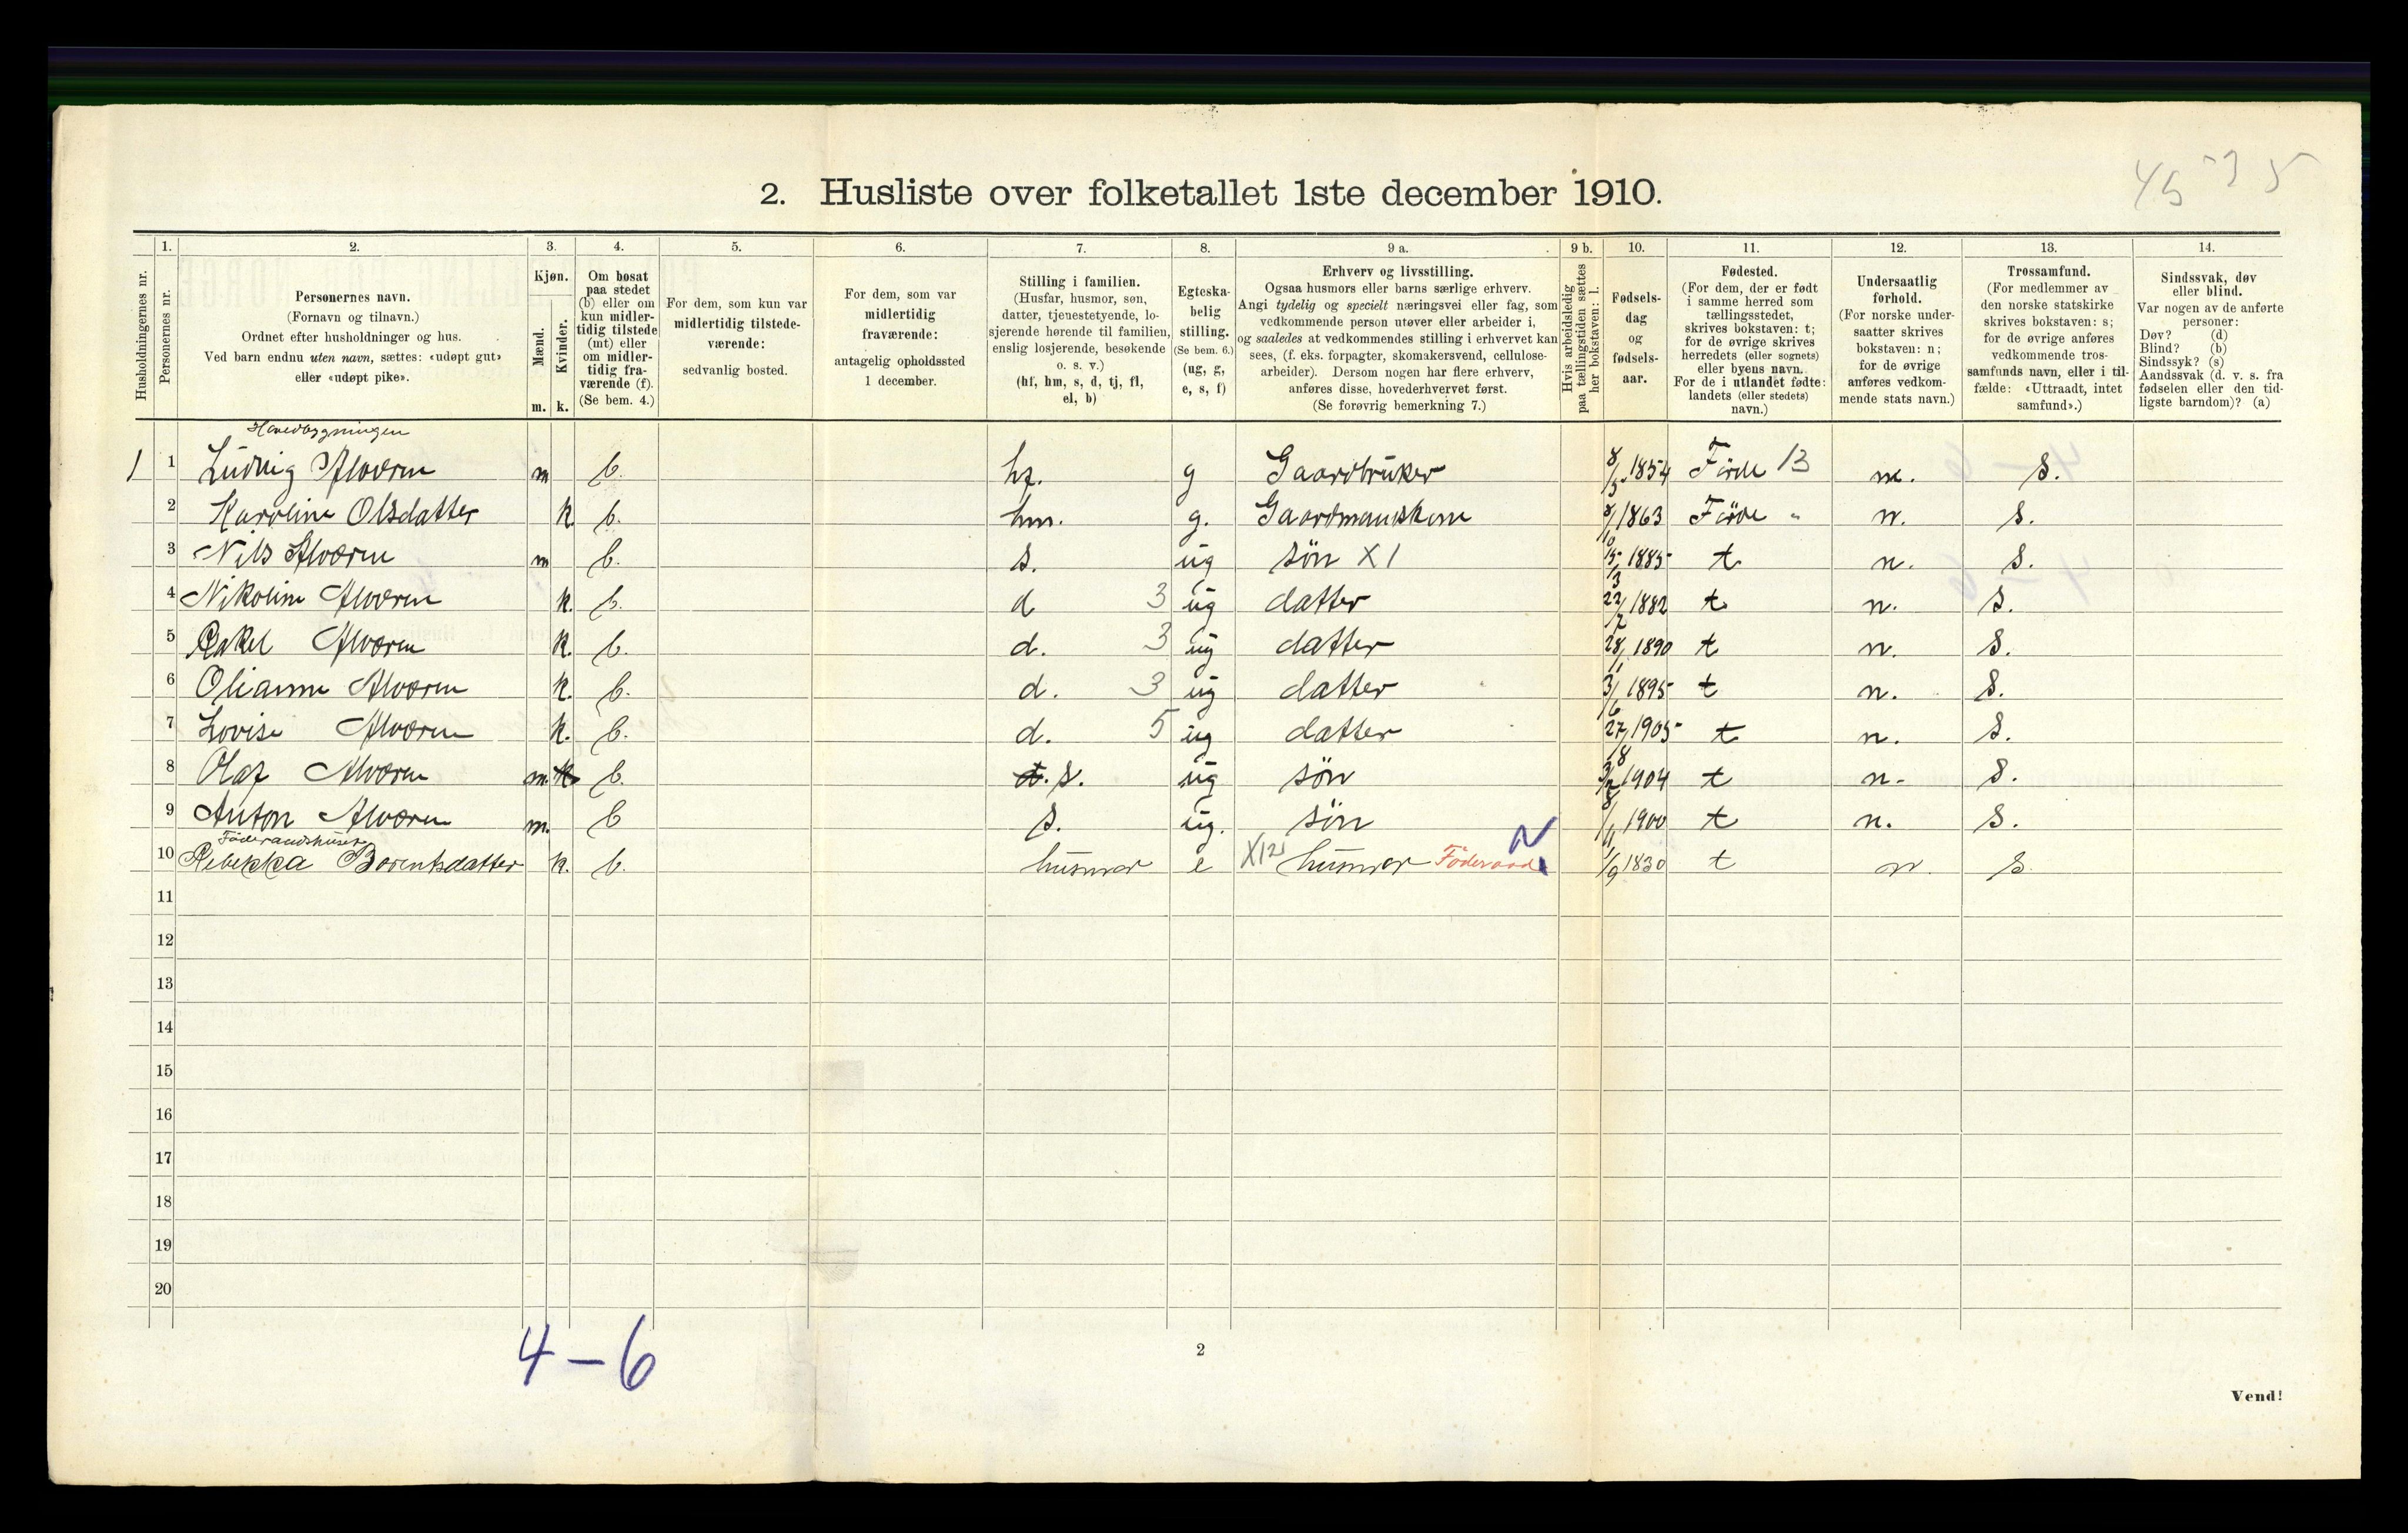 45 - 3 5
2. Husliste over folketallet 1ste december 1910.
Husholdningernes nr.
1.
Personernes nr.
2.
Personernes navn.
(Fornavn og tilnavn.)
Ordnet efter husholdninger og hus.
Ved barn endnu uten navn, sættes: «udøpt gut»
eller «udøpt pike».
3.
Kjøn.
Mænd.
Kvinder.
m. k.
4.
Om bosat
paa stedet
(b) eller om
kun midler-
tidig tilstede
(mt) eller
om midler-
tidig fra-
værende (f).
(Se bem. 4.)
5.
For dem, som kun var
midlertidig tilstede-
værende:
sedvanlig bosted.
6.
For dem, som var
midlertidig
fraværende:
antagelig opholdssted
1 december.
7.
Stilling i familien.
(Husfar, husmor, søn,
datter, tjenestetyende, lo-
sjerende hørende til familien,
enslig losjerende, besøkende
o. s. v.)
(hf, hm, s, d, tj, fl,
el, b)
8.
Egteska-
belig
stilling.
(Se bem. 6.)
(ug, g,
e, s, f)
9 a.
Erhverv og livsstilling.
Ogsaa husmors eller barns særlige erhverv.
Angi tydelig og specielt næringsvei eller fag, som
vedkommende person utøver eller arbeider i,
og saaledes at vedkommendes stilling i erhvervet kan
sees, (f. eks. forpagter, skomakersvend, cellulose-
arbeider). Dersom nogen har flere erhverv,
anføres disse, hovederhvervet først.
(Se forøvrig bemerkning 7.)
9 b.
Hvis arbeidsledig
paa tællingstiden sættes
her bokstaven: l.
10.
Fødsels-
dag
og
fødsels-
aar.
11.
Fødested.
(For dem, der er født
i samme herred som
tællingsstedet,
skrives bokstaven: t;
for de øvrige skrives
herredets (eller sognets)
eller byens navn.
For de i utlandet fødte:
landets (eller stedets)
navn.)
12.
Undersaatlig
forhold.
(For norske under-
saatter skrives
bokstaven: n;
for de øvrige
anføres vedkom-
mende stats navn.)
13.
Trossamfund.
(For medlemmer av
den norske statskirke
skrives bokstaven: s;
for de øvrige anføres
vedkommende tros-
samfunds navn, eller i til-
fælde: «Uttraadt, intet
samfund».)
14.
Sindssvak, døv
eller blind.
Var nogen av de anførte
personer:
Døv? (d)
Blind? (b)
Sindssyk? (s)
Aandssvak (d. v. s. fra
fødselen eller den tid-
ligste barndom)? (a)
Hovedbygningen
1 1 Ludvig Alværn m b. hf. g Gaardbruker 8/5 1854 Förde 13 n. S.
2 Karoline Olsdatter k b. hm. g. Gaardmandskone 8/10 1863 Förde " n. S.
3 Nils Alværn m b. s. ug sön X1 15/3 1885 t n. S.
4 Nikoline Alværn k. b. d 3 ug datter 22/7 1882 t n. S.
5 Rakel Alværn k. b. d. 3 ug datter 28/1 1890 t n. S.
6 Olianne Alværn k. b. d. 3 ug datter 3/6 1895 t n. S.
7 Lovise Alværn k. b. d. 5 ug datter 27/8 1905 t n. S.
8 Olaf Alværn m. k b. d. s. ug sön 3/2 1904 t n. S.
9 Anton Alværn m. b s. ug. sön 8/11 1900 t n. S.
Föderaadshuset
10 Rebekka Berentsdatter k. b. husmor e X121 husmor Föderaad N 1/9 1830 t n. S
11
12
13
14
15
16
17
18
19
20
4 – 6
2
Vend!